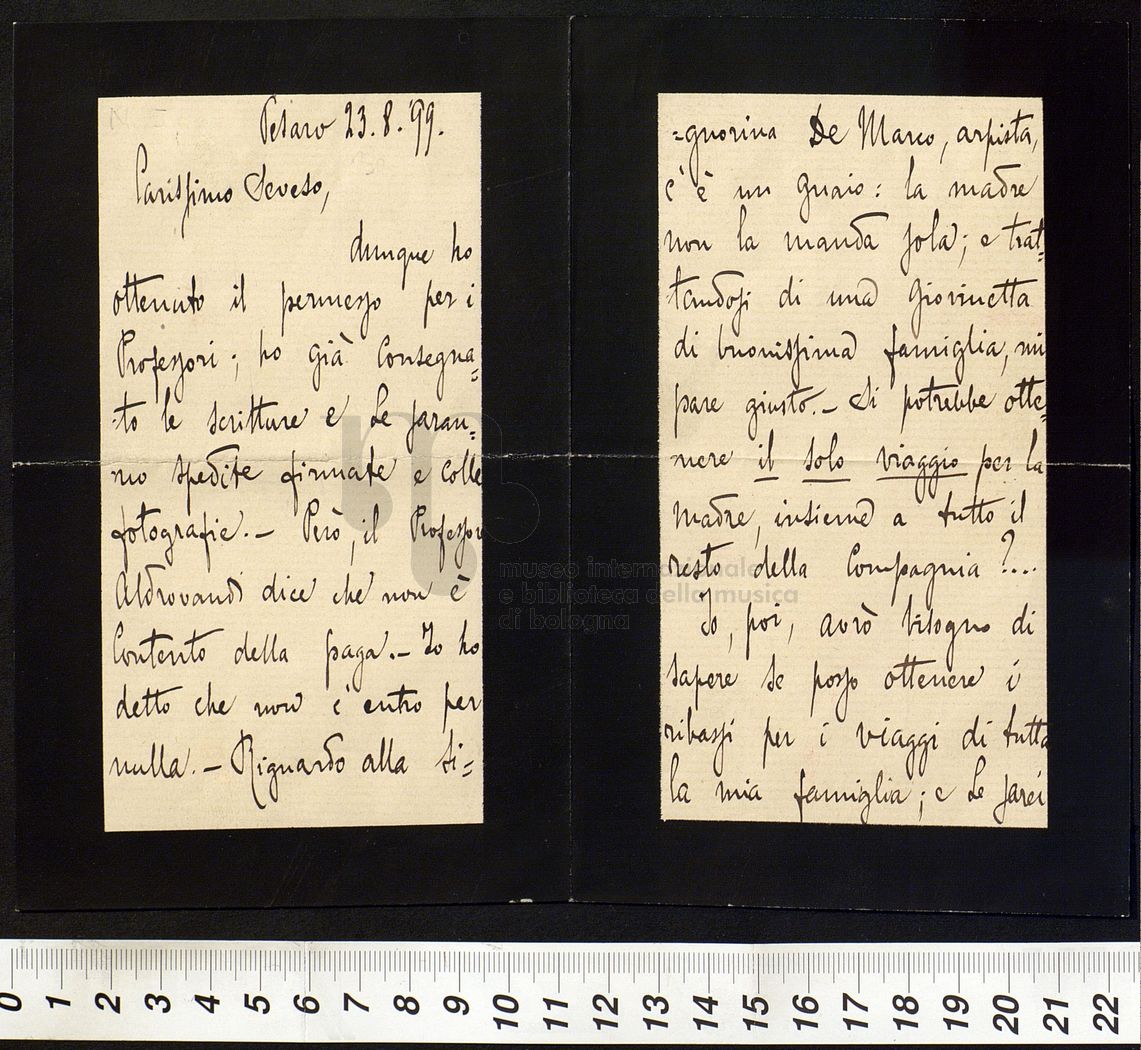 Pesaro 23.8.'99.
Carissimo Seveso,
dunque ho
ottenuto il permesso per i
Professori; ho già consegna=
=to le scritture e Le saran=
no spedite firmate e colle
fotografie.- Però, il Professor
Aldrovandi dice che non è
contento della paga.- Io ho
detto che non c'entro per
nulla.- Riguardo alla Si=
=gnorina De Marco, arpista,
c'è un guaio: la madre
non la manda sola; e trat=
tandosi di una giovinetta
di buonissima famiglia, mi
pare giusto.- Si potrebbe otte=
nere il solo viaggio per la
madre, insieme a tutto il
resto della Compagnia?...
Io, poi, avrò bisogno di
sapere se posso ottenere i
ribassi per i viaggi di tutta
la mia famiglia; e Le sarei
museo internazionale
e biblioteca della musica
di bologna
0 1 2 3 4 5 6 7 8 9 10 11 12 13 14 15 16 17 18 19 20 21 22